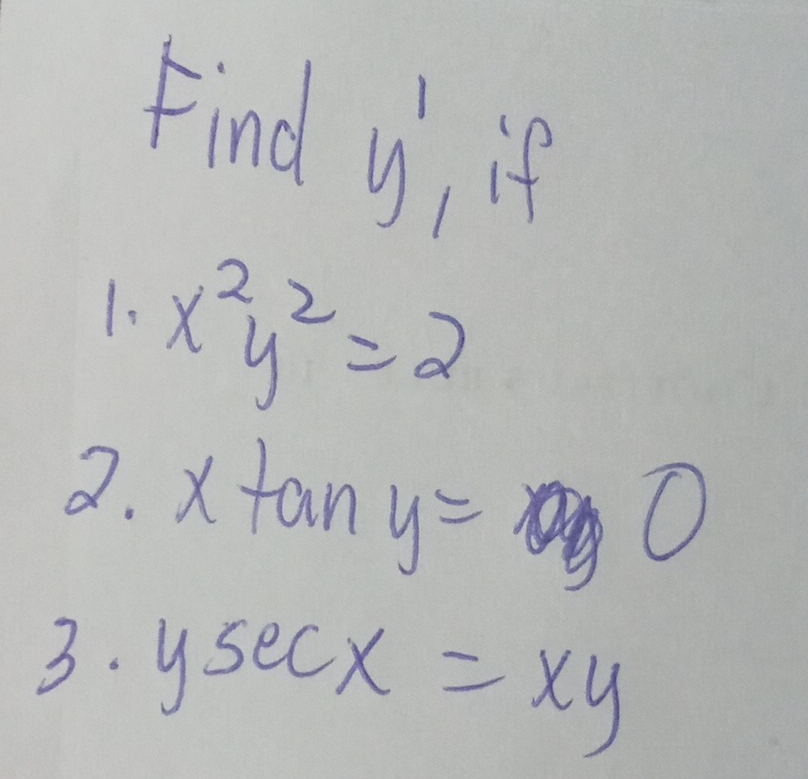 Find y', if
1. x²y² = 2
2. x tan y = 0
3. y sec x = xy